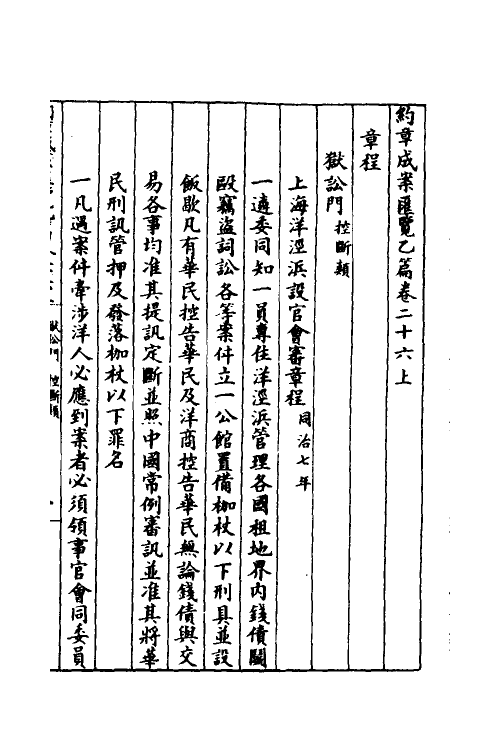 約章成案匯覽乙篇卷二十六上
章程
獄訟門 控斷類
上海洋涇浜設官會審章程 同治七年
一遴委同知一員專住洋涇浜管理各國租地界内錢債鬭
毆竊盜詞訟各等案件立一公館置備枷杖以下刑具並設
飯歇凡有華民控告華民及洋商控告華民無論錢債與交
易各事均准其提訊定斷並照中國常例審訊並准其將華
民刑訊管押及發落枷杖以下罪名
一凡遇案件牽涉洋人必應到案者必須領事官會同委員
獄訟門 控斷類